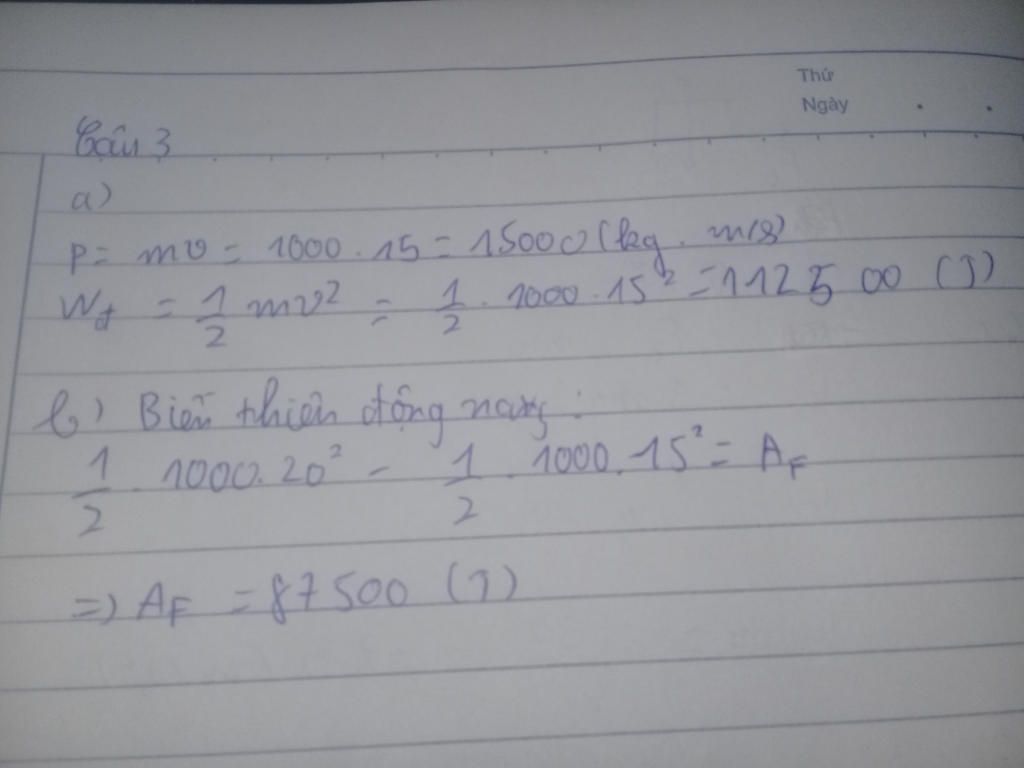 Thứ
Ngày
Câu 3
a)
p = mv = 1000 . 15 = 15000 (kg . m/s)
Wđ = 1/2 mv² = 1/2 . 1000 . 15² = 112500 (J)
b) Biến thiên động năng :
1/2 . 1000 . 20² - 1/2 . 1000 . 15² = A_F
=> A_F = 87500 (J)